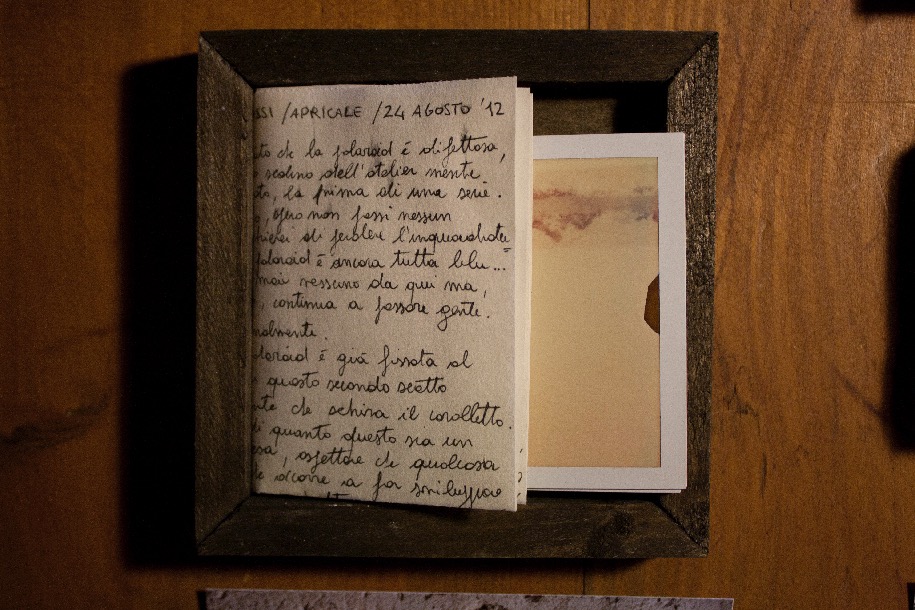 SSI / APRICALE / 24 AGOSTO '12
to che la polaroid è difettosa,
scalino dell'atelier mentre
to, la prima di una serie.
, spero non passi nessun
di perdere l'inquadratu=
polaroid è ancora tutta blu...
mai nessuno da qui ma,
, continua a passare gente.
nalmente.
laroid è già fissata al
questo secondo scatto
nte che schiva il cavalletto.
di quanto questo sia un
sa, aspettare che qualcosa
e ancora a far sviluppare